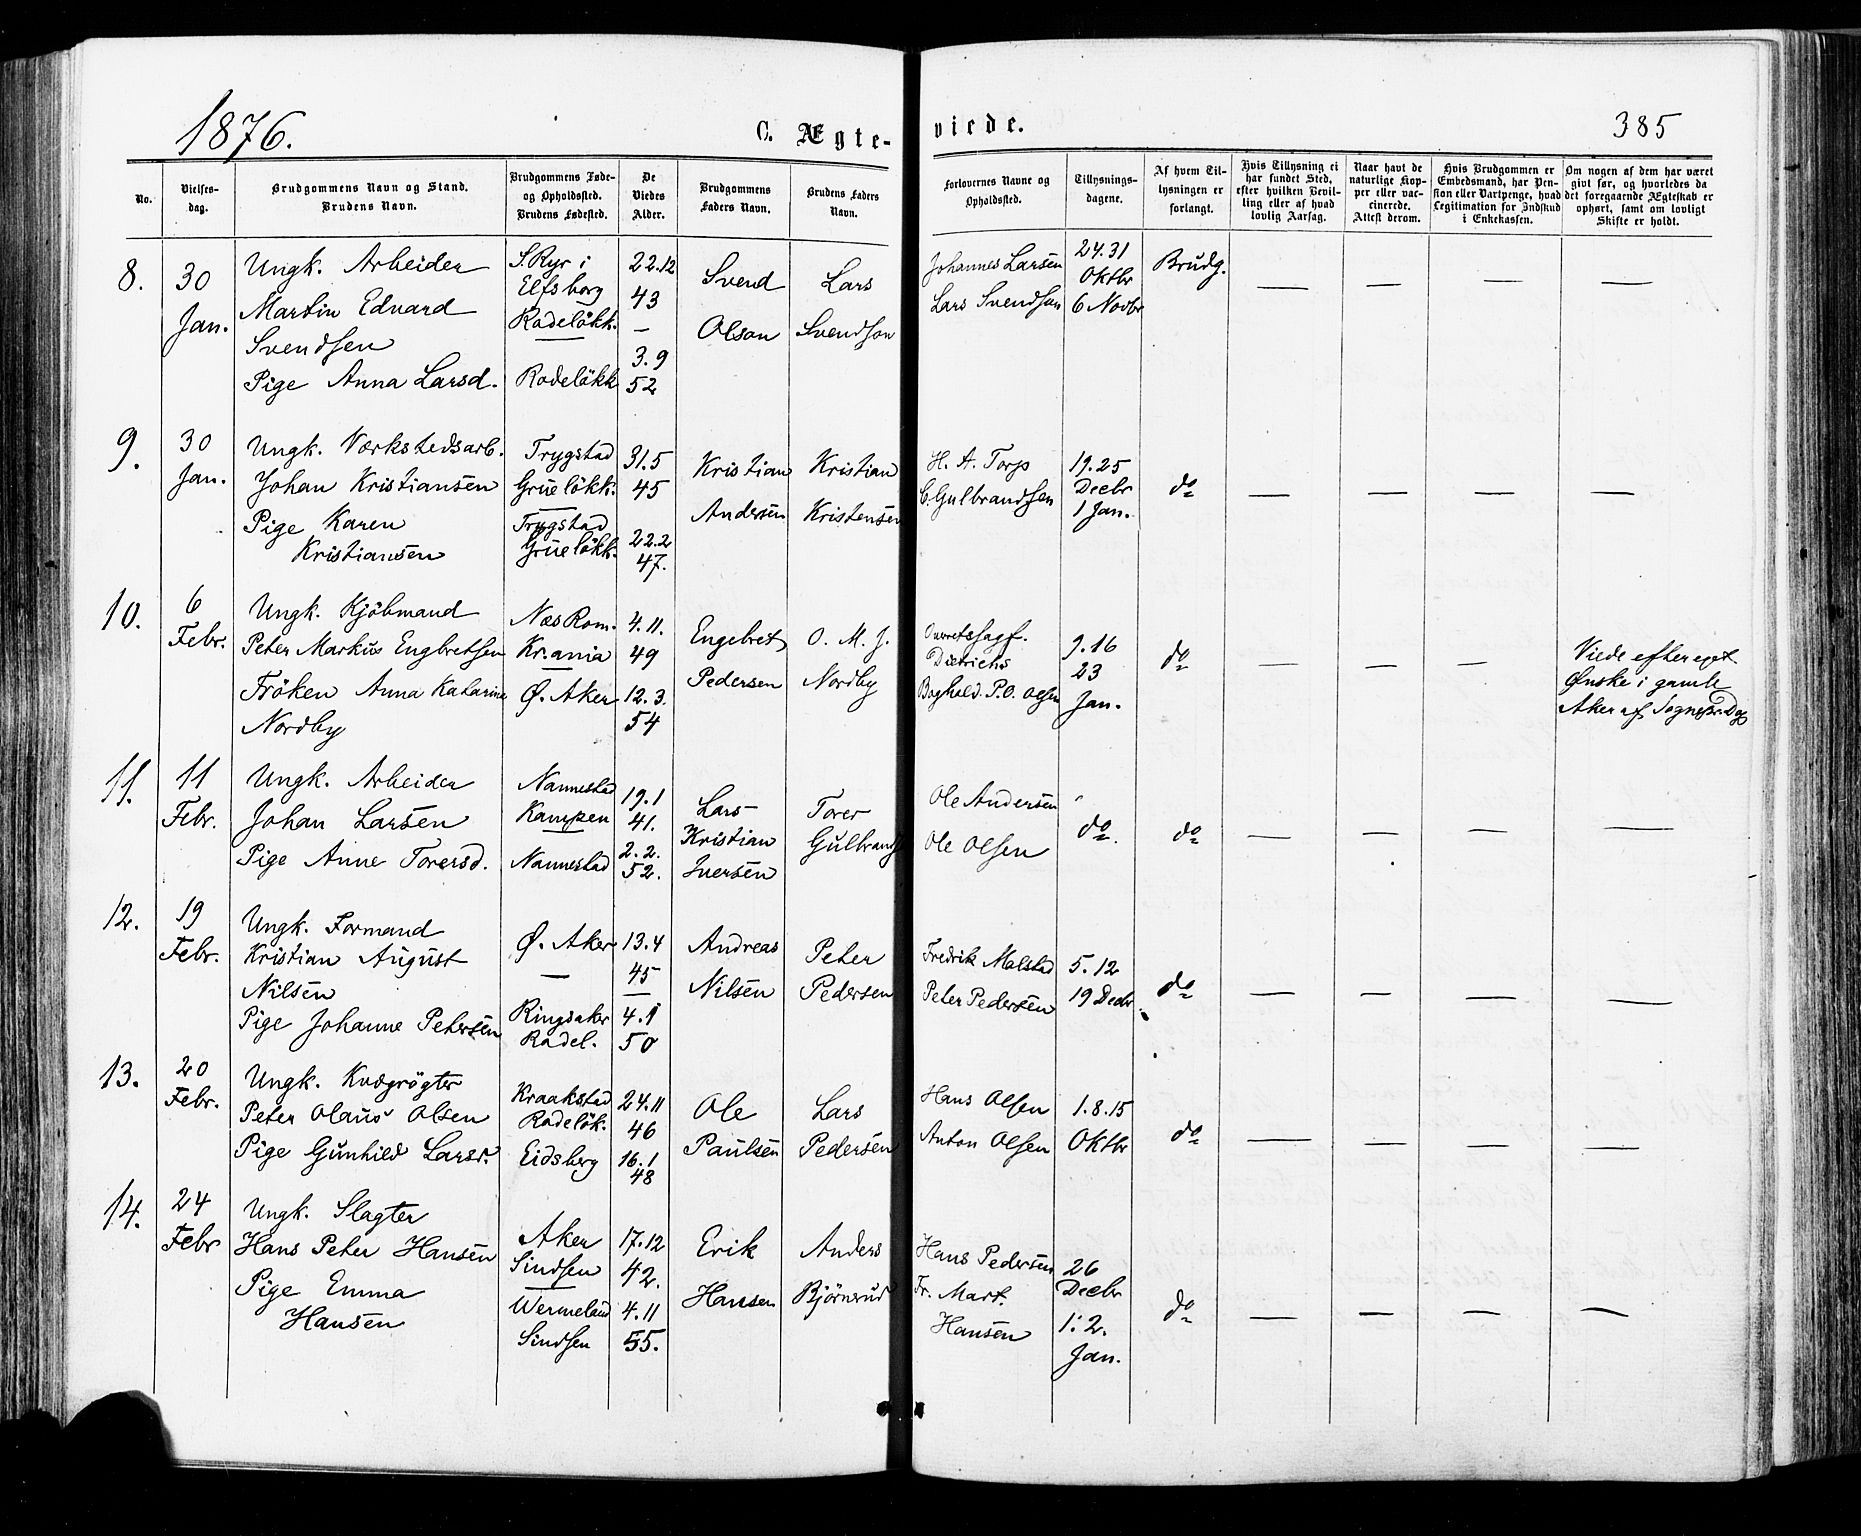 1876.
C. Ægte-
viede.
385
No.
Vielses-
dag.
Brudgommens Navn og Stand.
Brudens Navn.
Brudgommens Føde-
og Opholdssted.
Brudens Fødested.
De
Viedes
Alder.
Brudgommens
Faders Navn.
Brudens Faders
Navn.
Forlovernes Navne og
Opholdssted.
Tillysnings-
dagene.
Af hvem Til-
lysningen er
forlangt.
Hvis Tillysning ei
har fundet Sted,
efter hvilken Bevil-
ling eller af hvad
lovlig Aarsag.
Naar havt de
naturlige Kop-
per eller vac-
cinerede.
Attest derom.
Hvis Brudgommen er
Embedsmand, har Pen-
sion eller Vartpenge, hvad
Legitimation for Indskud
i Enkekassen.
Om nogen af dem har været
givt før, og hvorledes da
det foregaaende Ægteskab er
ophørt, samt om lovligt
Skifte er holdt.
8.
30
Jan.
Ungk. Arbeider
Martin Edvard
Svendsen
Pige Anna Larsd.
S. Ryr i
Elfsborg
Rodeløkk.
Rodeløkk
22.12
43
—
3.9
52
Svend
Olson
Lars
Svendson
Johannes Larsen
Lars Svendsen
24.31
Oktbr
6 Novbr
Brudg.
— — — —
9.
30
Jan.
Ungk. Værkstedsarb.
Johan Kristiansen
Pige Karen
Kristiansen
Trygstad
Grueløkk.
Trygstad
Grueløkk.
31.5
45
22.2
47.
Kristian
Andersen
Kristian
Kristensen
H. A. Torp
C. Gulbrandsen
19.25
Decbr
1 Jan.
do
— — — —
10.
6
Febr.
Ungk. Kjöbmand
Peter Markus Engbretsen
Fröken Anna Katharine
Nordby
Næs Rom.
Kr.ania
Ø. Aker
4.11.
49
12.3.
54
Engebret
Pedersen
O. M. J.
Nordby
Overretssagf.
Dietrichs
Boghold. P. O. Olsen
9.16
23
Jan.
do
— — —
Viede efter eget
Ønske i gamle
Aker af Sognepr.
11.
11
Febr.
Ungk. Arbeider
Johan Larsen
Pige Anne Torersd.
Nannestad
Kampen
Nannestad
19.1
41.
2.2.
52.
Lars
Kristian
Iversen
Torer
Gulbrands
Ole Andersen
Ole Olsen
do.
do
— — — —
12.
19
Febr.
Ungk. Formand
Kristian August
Nilsen
Pige Johanne Petersen
Ø. Aker
—
Ringsaker
Rodel.
13.4
45
4.1
50
Andreas
Nilsen
Peter
Pedersen
Fredrik Molstad
Peter Pedersen
5.12
19 Decbr.
do
— — — —
13.
20
Febr.
Ungk. Kvægrögter
Peter Olaus Olsen
Pige Gunhild Larsd.
Kraakstad
Rodelök.
Eidsberg
24.11
46
16.1
48
Ole
Paulsen
Lars
Pedersen
Hans Olsen
Anton Olsen
1.8.15
Oktbr
do
— — — —
14.
24
Febr
Ungk. Slagter
Hans Peter Hansen
Pige Emma
Hansen
Aker
Sindsen
Wermeland
Sindsen
17.12
42.
4.11
55.
Erik
Hansen
Anders
Björnsrud
Hans Pedersen
Fr. Mart.
Hansen
26
Decbr
1.2.
Jan.
do
— — — —